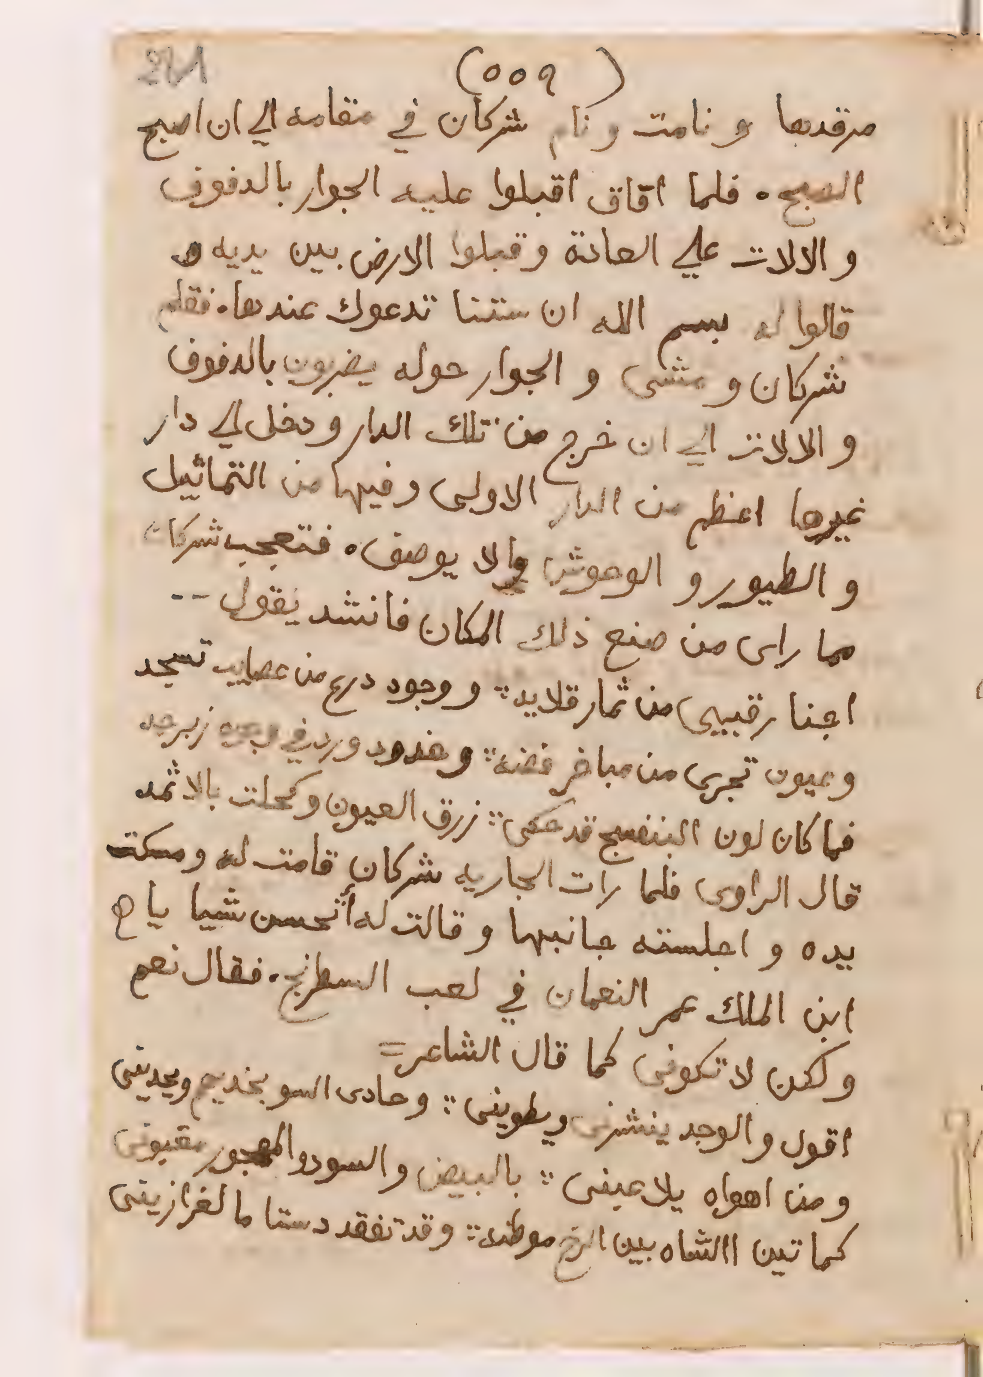 (٥٥٩)
مرقدها و نامت و نام شركان في مقامه الي ان اصبح
الصبح . فلما افاق اقبلوا عليه الجوار بالدفوف
و الالات علي العادة وقبلوا الارض بين يديه و
قالوا له بسم الله ان ستنا تدعوك عندها . فقام
شركان و مشى و الجوار حوله يضربون بالدفوف
و الالات الي ان خرج من تلك الدار ودخل الي دار
غيرها اعظم من الدار الاولى وفيها من التماثيل
و الطيور و الوحوش والا يوصف . فتعجب شركان
مما راى من صنع ذلك المكان فانشد يقول --
اجنا رقيبي من ثمار قلايد :: و وجود درع من عصايب تسجد
وعيون تجرى من مباخر فضة :: وخدود ورد في وجوه زبرجد
فما كان لون البنفسج قد حكى :: زرق العيون وكحلت بالاثمد
قال الراوى فلما رات الجاريه شركان قامت له ومسكت
يده و اجلسته جانبها و قالت له أتحسن شيا يا
ابن الملك عمر النعمان في لعب السطرنج . فقال نعم
ولكن لا تكونى كما قال الشاعر =
اقول والوجد ينشرنى ويطوينى :: وحادى السو
ومن اهواه يلاعبنى :: بالبيض والسود
كما تين االشاه بين الرخ موطنه :: وقد تفقد دستا